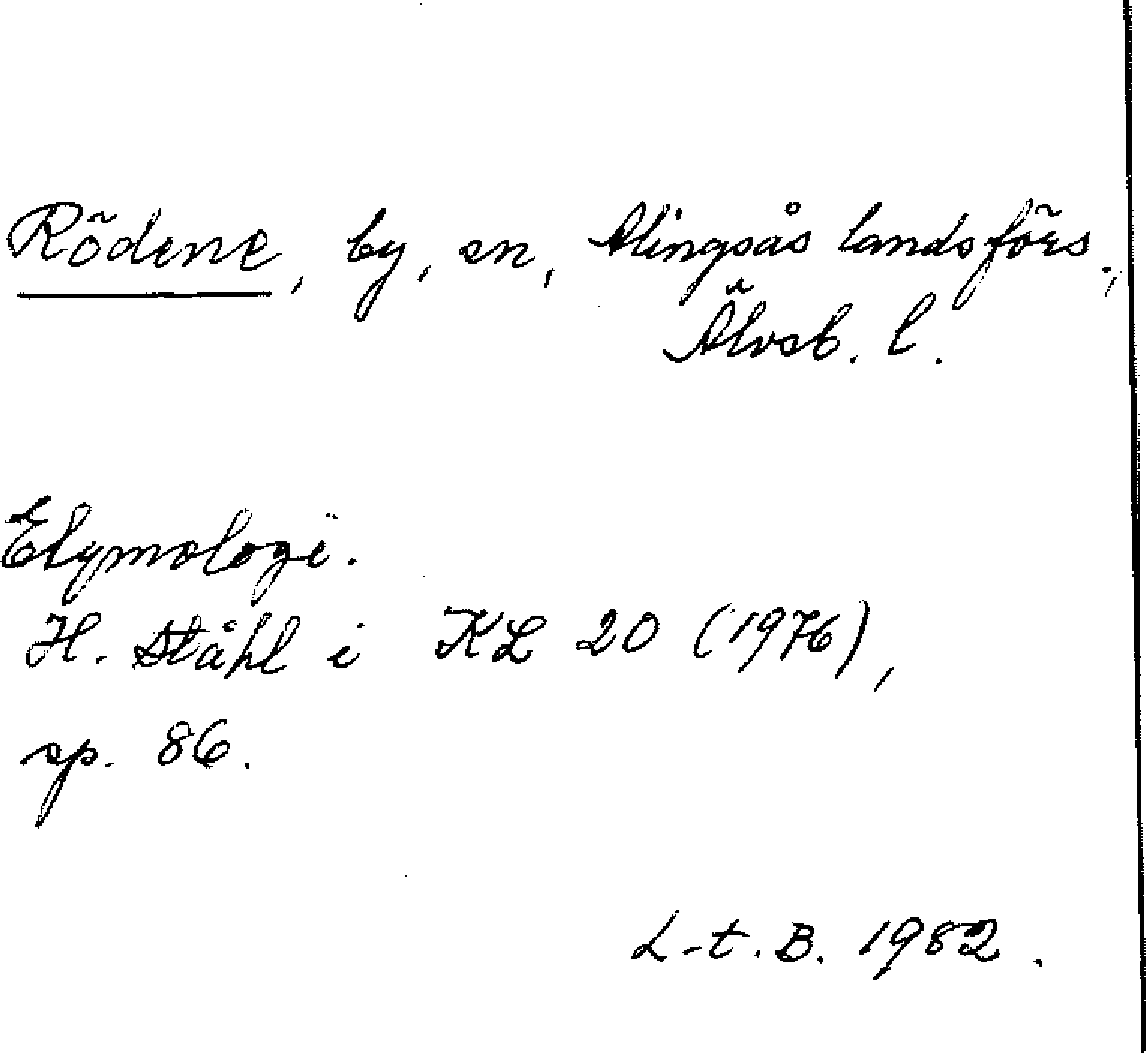 Rödene, by, sn, Alingsås landsförs.,
Älvsb. l.
Etymologi.
H. Ståhl i KL 20 (1976),
sp. 86.
L-t. B. 1982.